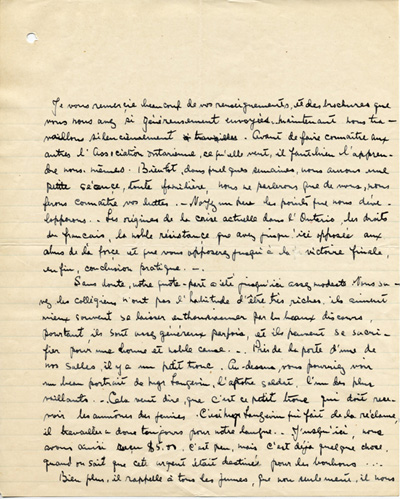 Je vous remercie beaucoup de vos renseignements, et des brochures que
vous nous avez si généreusement envoyées. Maintenant nous tra-
vaillons silencieusement. Avant de faire connaître aux
autres l'Association ontarienne, ce qu'elle veut, il faut bien l'appren-
dre nous-mêmes. Bientôt, dans quelques semaines, nous aurons une
petite séance, toute familière, nous ne parlerons que de vous, nous
ferons connaître vos luttes. - Voyez un peu les points que nous déve-
lopperons. - Les origines de la crise actuelle dans l'Ontario, les droits
du français, la noble résistance que avez jusqu'ici opposée aux
abus de la force et que vous opposerez jusqu'à la victoire finale,
enfin, conclusion pratique. -
Sans doute, notre quote-part a été jusqu'ici assez modeste. Vous sa-
vez les collégiens n'ont pas l'habitude d'être très riches, ils aiment
mieux souvent se laisser enthousiasmer par les beaux discours,
pourtant, ils sont assez généreux parfois, et ils peuvent se sacri-
fier pour une bonne et noble cause. - Près de la porte d'une de
nos salles, il y a un petit tronc. Au-dessus, vous pourriez voir
un beau portrait de Mgr Langevin, l'apôtre soldat, l'un des plus
vaillants. - Cela veut dire, que c'est ce petit tronc qui doit rece-
voir les aumônes des jeunes. - C'est Mgr Langevin qui fait de la réclame,
il travaillera donc toujours pour notre langue. - Jusqu'ici, nous
avons ainsi reçu $5.00. C'est peu, mais c'est déjà quelque chose,
quand on sait que cet argent était destiné pour les bonbons ...
Bien plus, il rappelle à tous les jeunes, que non seulement, il nous